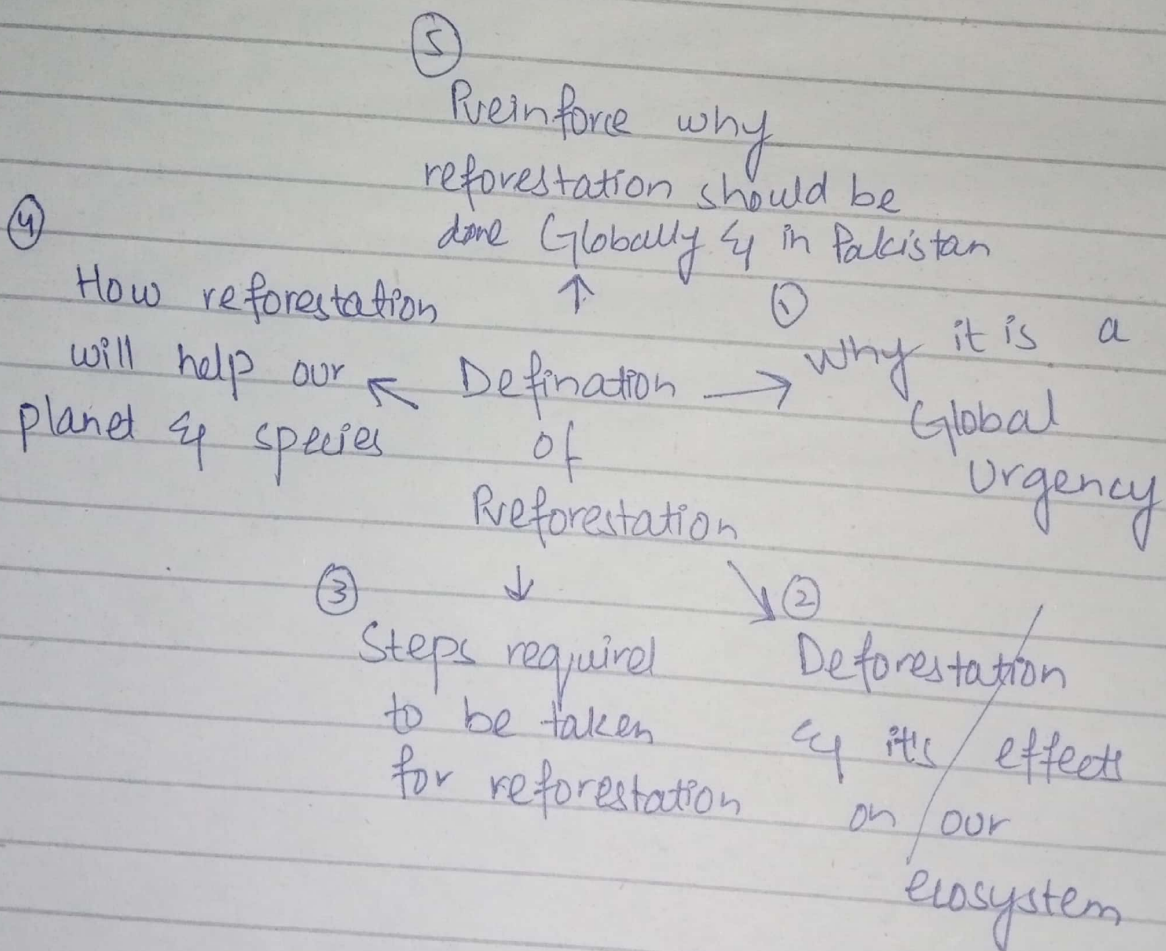 5
Reinforce why
reforestation should be
done Globally & in Pakistan
4
How reforestation
will help our
planet & species
↑
1
Why it is a
Global
Urgency
← Defination →
of
Reforestation
↓
3
Steps required
to be taken
for reforestation
↘ 2
Deforestation
& it's effects
on our
ecosystem